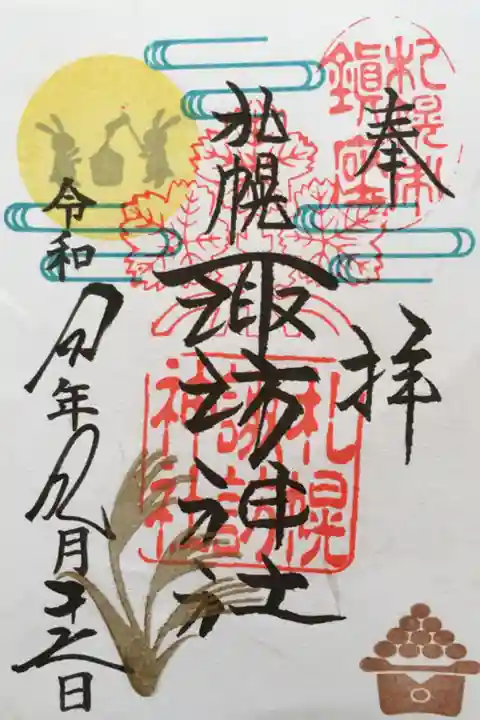 奉拝
札幌市
鎭座
札幌諏訪神社
札幌
諏訪
神社
令和年九月日